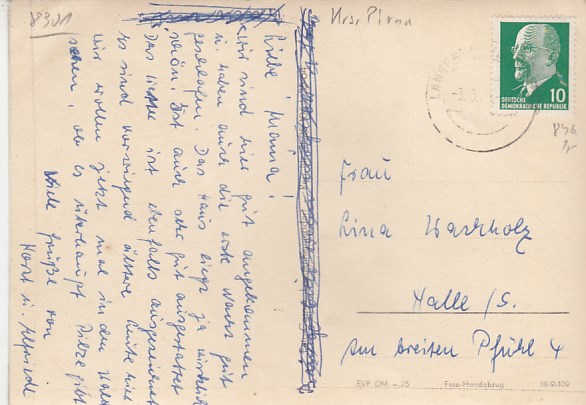 8301
Krs. Pirna
Liebe Mama!
Wir sind hier gut angekommen
u. haben auch die erste Nacht gut
geschlafen. Das Haus liegt ja wirklich
schön. Ist auch sehr gut ausgestattet
Das Essen ist ebenfalls ausgezeichnet
Es sind vorwiegend ältere Leute hier
Wir wollen jetzt mal in den Wald
sehen, ob es überhaupt Pilze gibt
Viele Grüße von
Horst u. Elfriede
DEUTSCHE
DEMOKRATISCHE REPUBLIK
10
Frau
Lina Warholz
Halle/S.
Am breiten Pfuhl 4
EVP DM -.25 Foto-Handabzug III-9-109